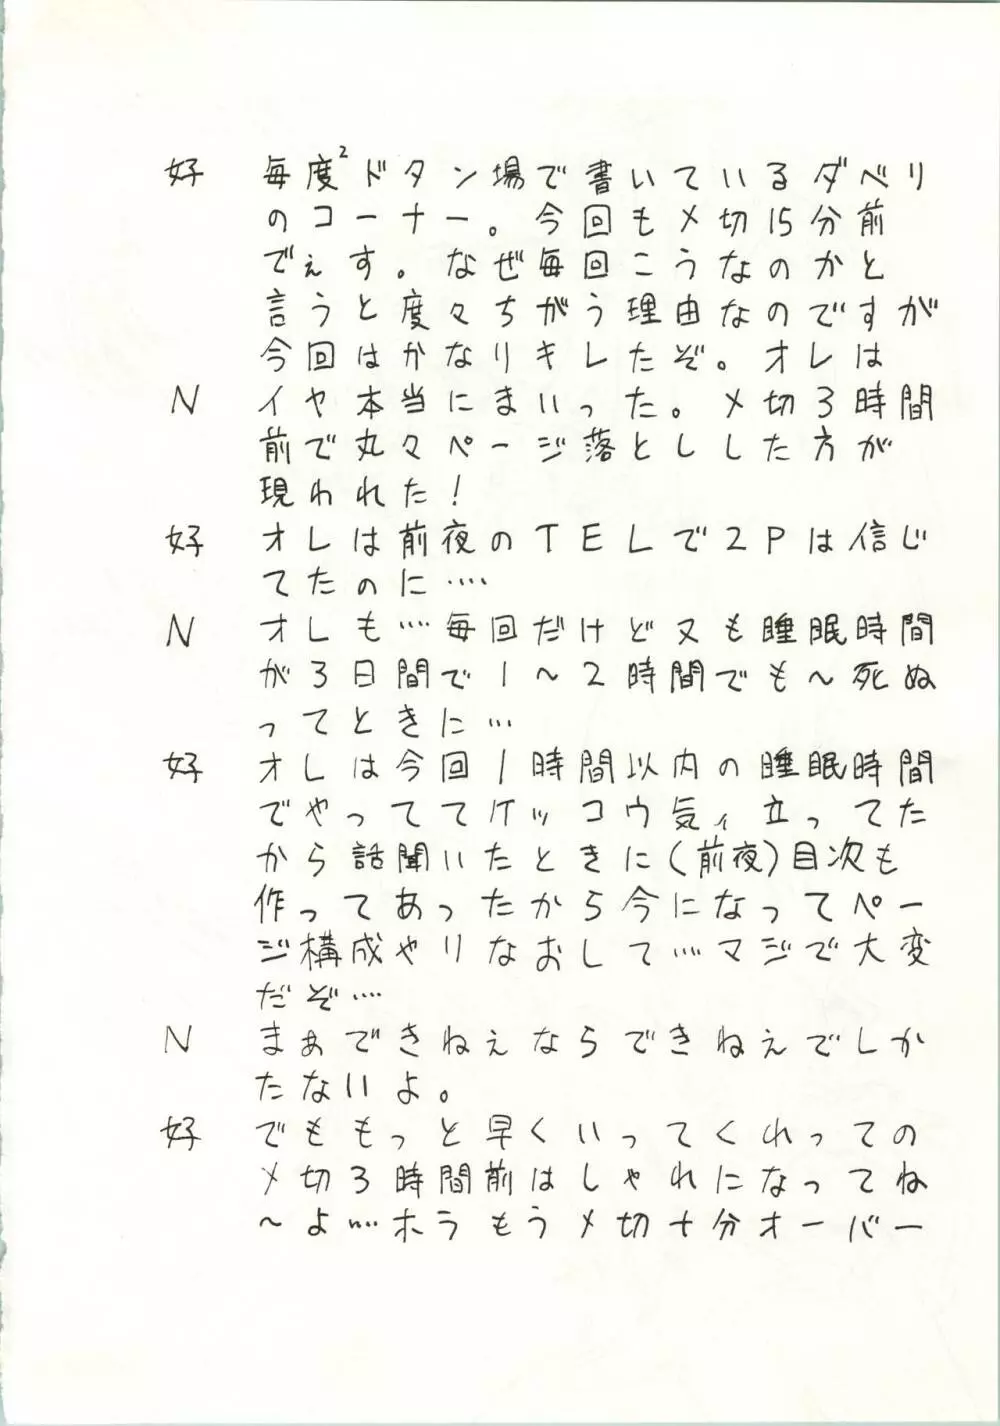 好 毎度²ドタン場で書いているダベリ
のコーナー。今回も〆切15分前
でぇす。なぜ毎回こうなのかと
言うと度々ちがう理由なのですが
今回はかなりキレたぞ。オレは
N イヤ本当にまいった。〆切3時間
前で丸々ページ落としした方が
現われた!
好 オレは前夜のTELで2Pは信じ
てたのに‥‥
N オレも‥‥毎回だけど又も睡眠時間
が3日間で1〜2時間でも〜死ぬ
ってときに…
好 オレは今回1時間以内の睡眠時間
でやっててケッコウ気ィ立ってた
から話聞いたときに(前夜)目次も
作ってあったから今になってペー
ジ構成やりなおして‥‥マジで大変
だぞ‥‥
N まぁできねぇならできねぇでしか
たないよ。
好 でももっと早くいってくれっての
〆切3時間前はしゃれになってね
〜よ‥‥ホラもう〆切十分オーバー